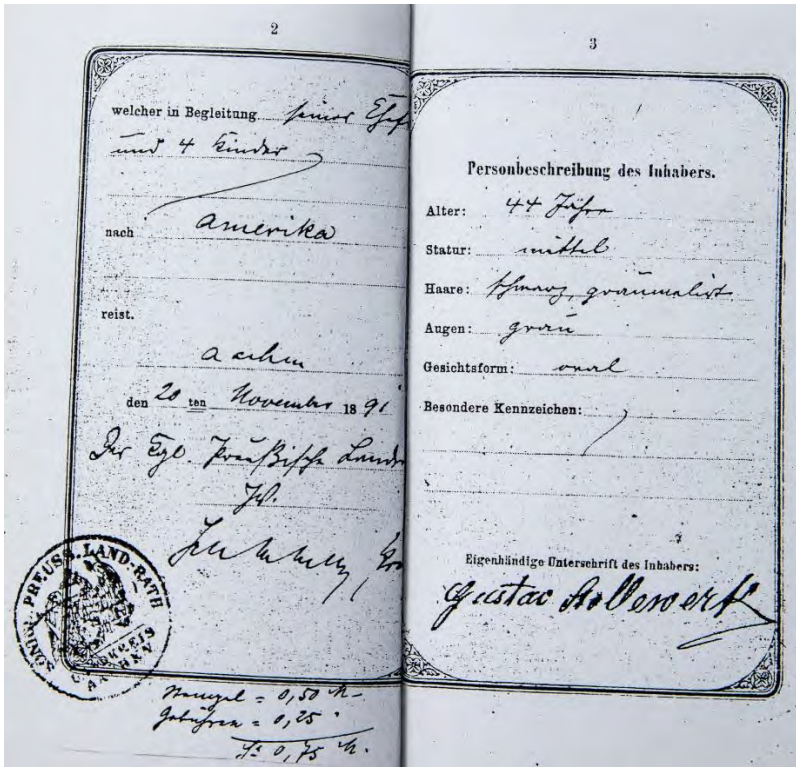 2
welcher in Begleitung seiner Ehef
und 4 Kinder
nach Amerika
reist.
Aachen
den 20 ten November 1891
Der Kgl. Preußische Landr
KÖNIGL. PREUSS. LAND-RATH
LANDKREIS
AACHEN
Stempel = 0,50 M.
Gebühren = 0,25 "
Sa 0,75 M.
3
Personbeschreibung des Inhabers.
Alter: 44 Jahre
Statur: mittel
Haare: schwarz, graumelirt
Augen: grau
Gesichtsform: oval
Besondere Kennzeichen:
Eigenhändige Unterschrift des Inhabers:
Gustav